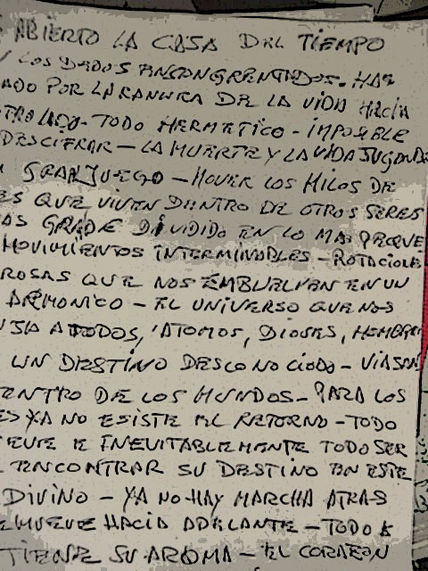 ABIERTO LA CASA DEL TIEMPO
Y LOS DEDOS ENCONGRENTADOS. HAS
ADO POR LA RANURA DE LA VIDA HACIA
OTRO LADO - TODO HERMETICO - IMPOSIBLE
DESCIFRAR - LA MUERTE Y LA VIDA JUGANDO
GRAN JUEGO - MOVER LOS HILOS DE
ES QUE VIVEN DENTRO DE OTROS SERES
GRANDE DIVIDIDO EN LO MAS PEQUE
MOVIMIENTOS INTERMINABLES - ROTACIONES
ROSAS QUE NOS EMBUELVEN EN UN
ARMONICO - EL UNIVERSO QUE NOS
A TODOS, ATOMOS, DIOSES, HOMBRES
UN DESTINO DESCONOCIDO - VIASAN
ENTRO DE LOS MUNDOS - PARA LOS
ES YA NO ESISTE EL RETORNO - TODO
EVE E INEVITABLEMENTE TODO SER
ENCONTRAR SU DESTINO EN ESTE
DIVINO - YA NO HAY MARCHA ATRAS
E MUEVE HACIA ADELANTE - TODO
TIENE SU AROMA - EL CORAZON